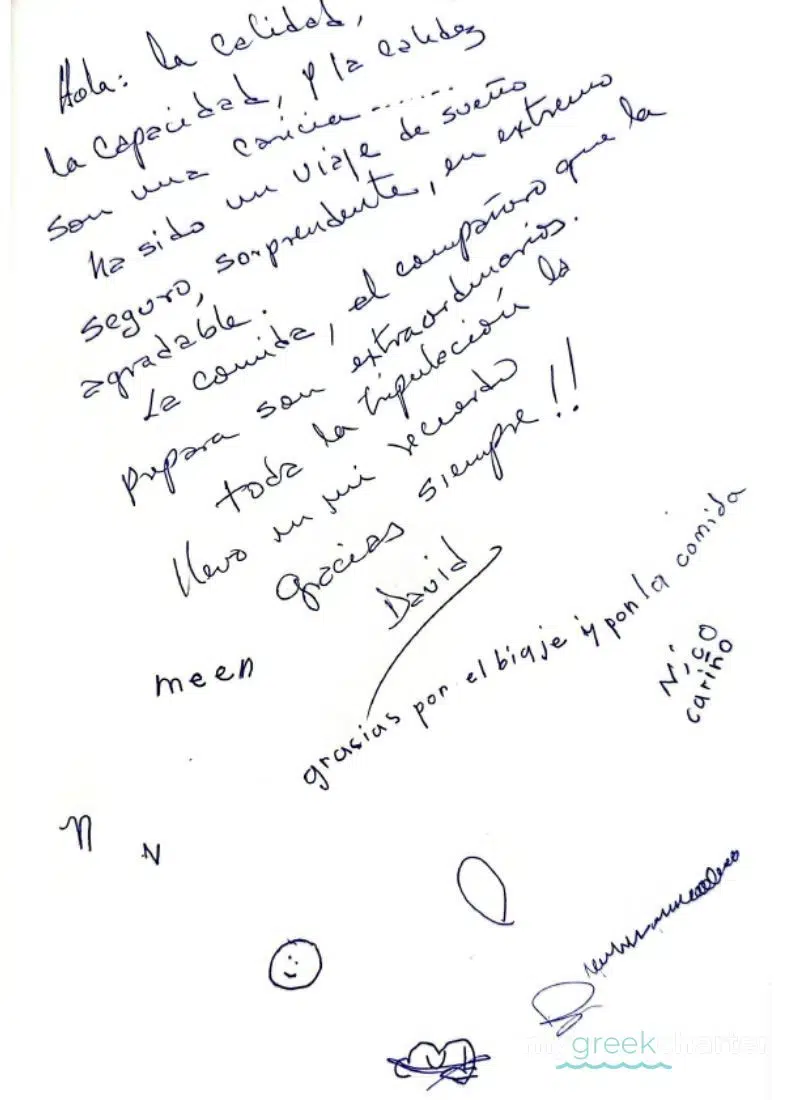 Hola: la calidad,
la capacidad, y la calidez
son una caricia ......
ha sido un viaje de sueño
seguro, sorprendente, en extremo
agradable.
La comida, el compañero que la
prepara son extraordinarios.
toda la tripulación la
llevo en mi recuerdo
gracias siempre!!
David
meen
grasias por el biaje y por la comida
Nico
cariño
n N
greekcharter